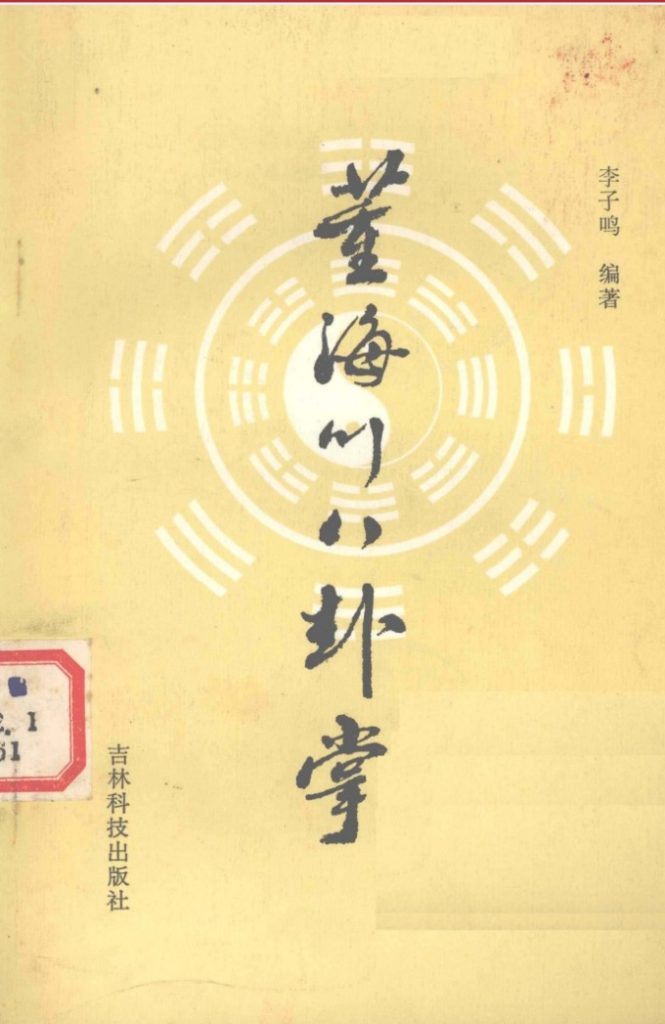 董海川八卦掌
李子鸣 编著
吉林科技出版社
. 1
51